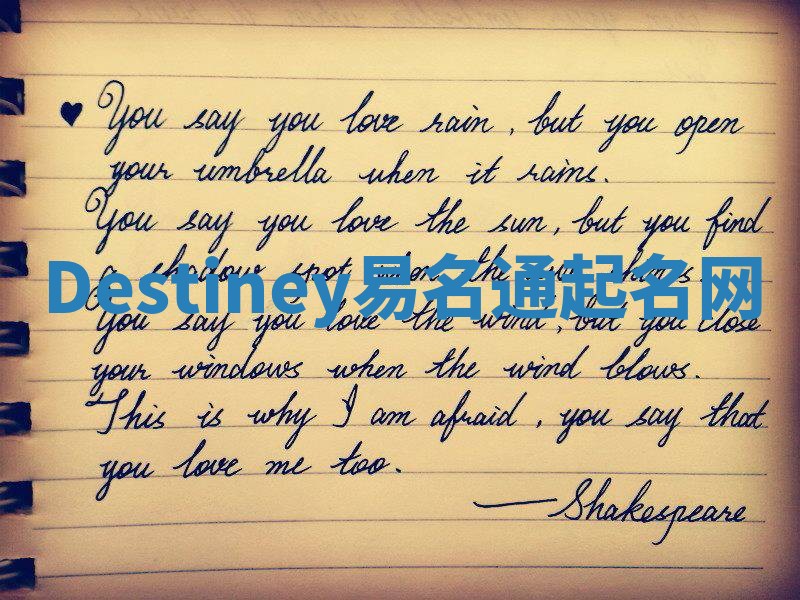 ♥ You say you love rain, but you open
your umbrella when it rains.
You say you love the sun, but you find
a shadow spot when the sun shines.
Destiney易名通起名网
You say you love the wind, but you close
your windows when the wind blows.
This is why I am afraid, you say that
you love me too.
—Shakespeare